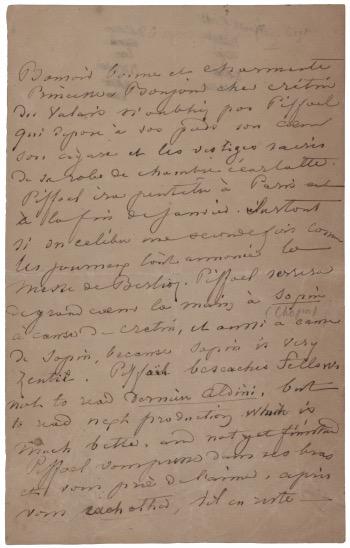 Bonsoir bonne et charmante
Princesse. Bonjour cher crétin
du Valais n'oubliez pas Piffoel
qui dépose à vos pieds son cœur
son cigare et les vestiges sacrés
de sa robe de chambre écarlatte.
Piffoel ira peutêtre à Paris
à la fin de Janvier. Surtout
si on celebre une seconde fois comme
les journaux l'ont annoncé la
messe de Berlioz. Piffoel serrera
de grand cœur la main à Sopin
(Chopin)
à cause de crétin, et aussi à cause
de Sopin, because Sopin is very
Zentil. Piffoël beseaches Fellows
not to read dernière Aldini, but
to read next production which is
much better, and not yet finished
Piffoel vous presse dans ses bras
et vous prie de l'aimer, après
vous, s'il en reste